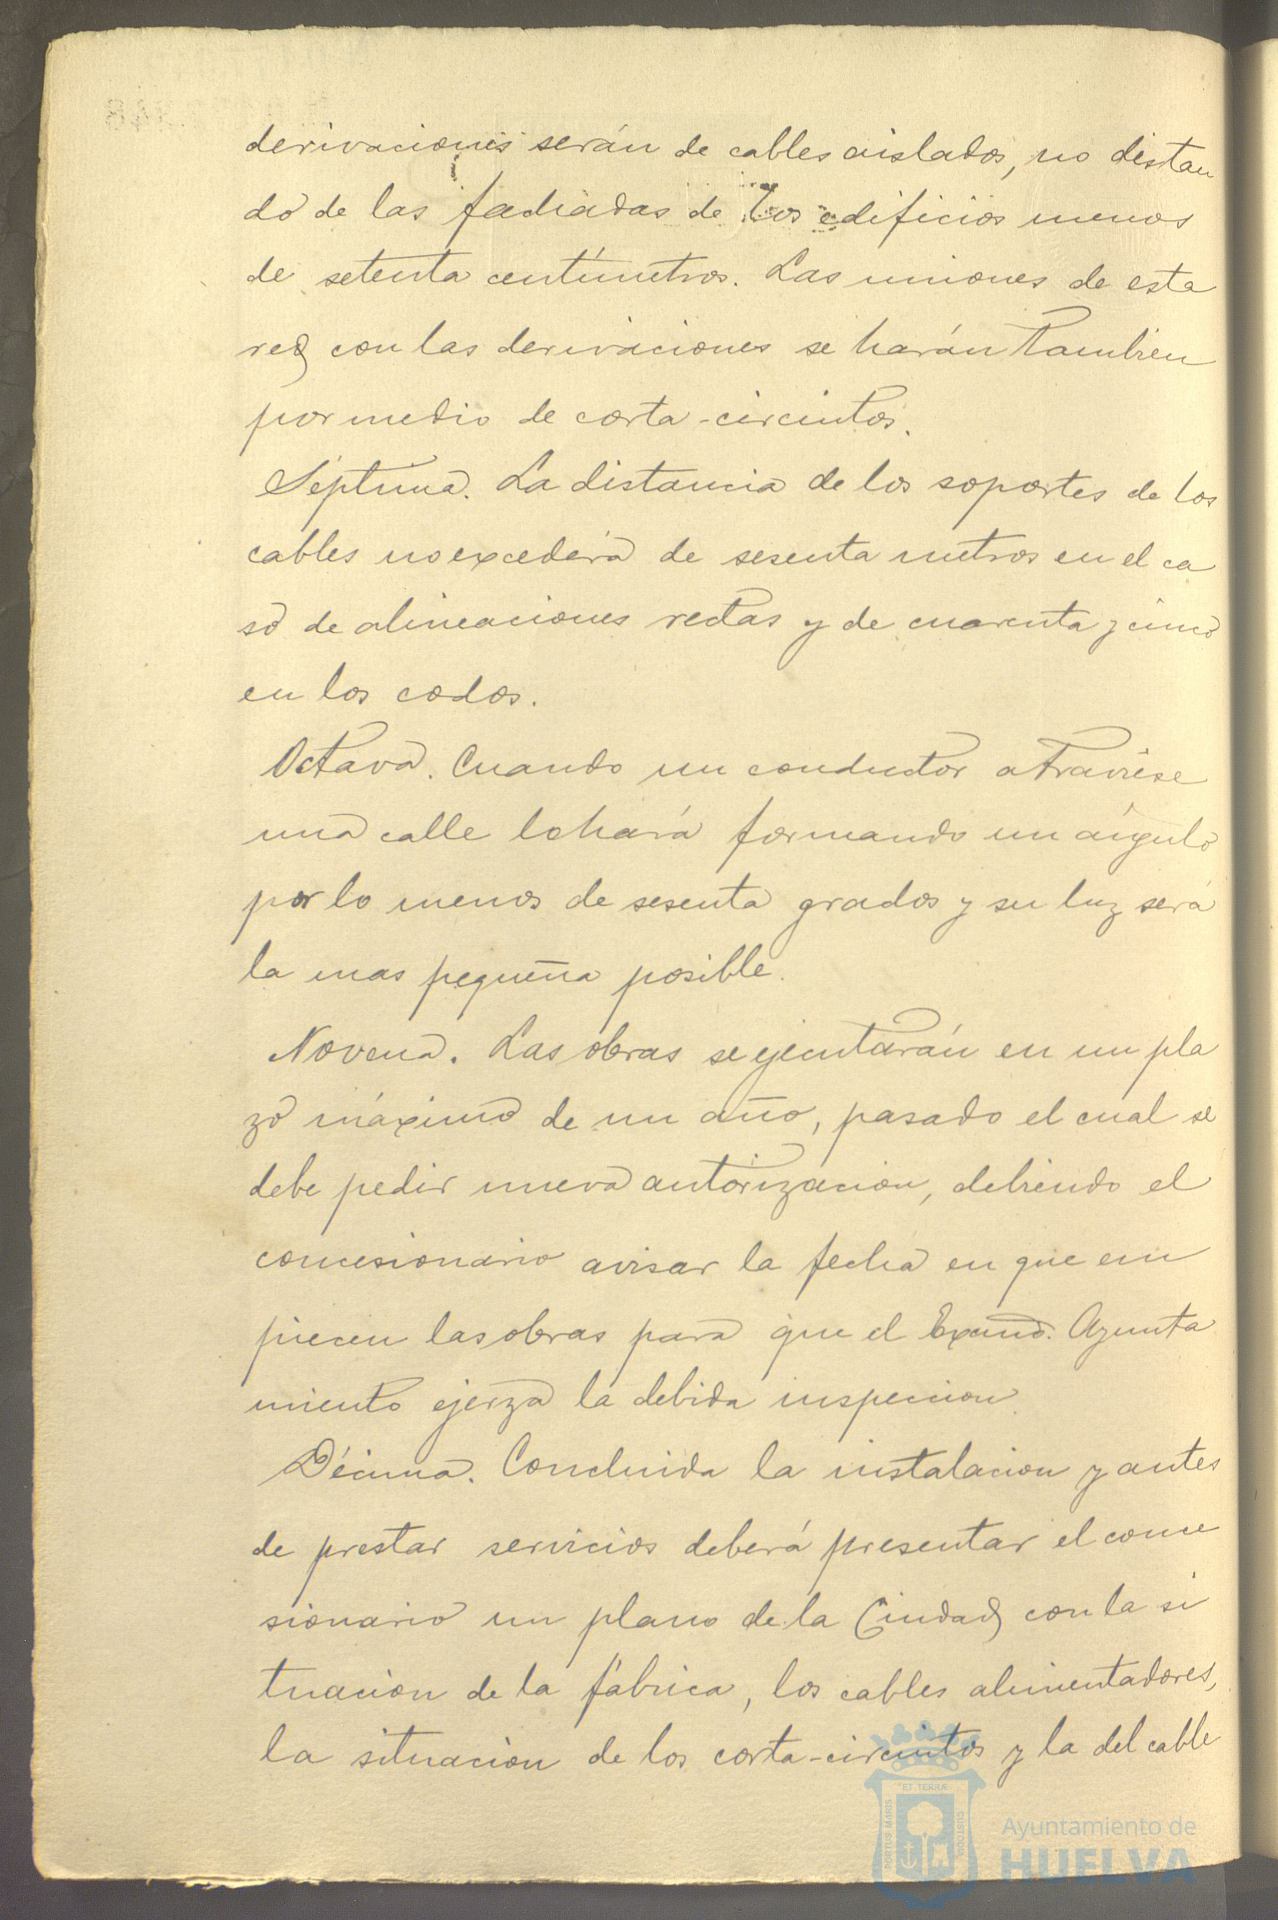 derivaciones serán de cables aislados, no distan
do de las fachadas de los edificios menos
de setenta centímetros. Las uniones de esta
red con las derivaciones se harán tambien
por medio de corta-circuitos.
Séptima. La distancia de los soportes de los
cables no excederá de sesenta metros en el ca
so de alineaciones rectas y de cuarenta y cinco
en los codos.
Octava. Cuando un conductor atraviese
una calle lo hará formando un ángulo
por lo menos de sesenta grados y su luz será
la mas pequeña posible.
Novena. Las obras se ejecutarán en un pla
zo máximo de un año, pasado el cual se
debe pedir nueva autorizacion, debiendo el
concesionario avisar la fecha en que em
piecen las obras para que el Excmo. Ayunta
miento ejerza la debida inspeccion.
Décima. Concluida la instalacion y antes
de prestar servicios deberá presentar el conce
sionario un plano de la Ciudad con la si
tuacion de la fábrica, los cables alimentadores,
la situacion de los corta-circuitos y la del cable
ET TERRÆ
PORTUS MARIS
CUSTODIA
Ayuntamiento de
HUELVA